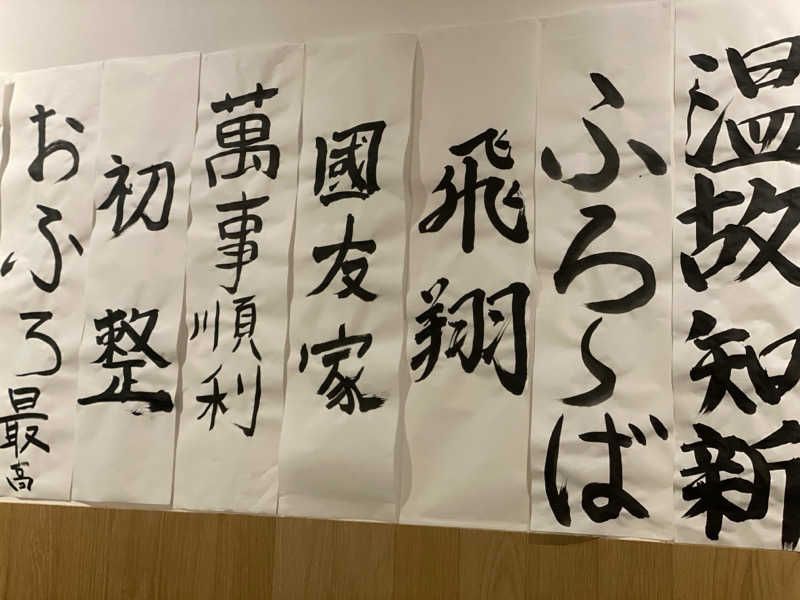 温故知新
ふろ〜ば
飛翔
國友家
萬事順利
初整
おふろ最高